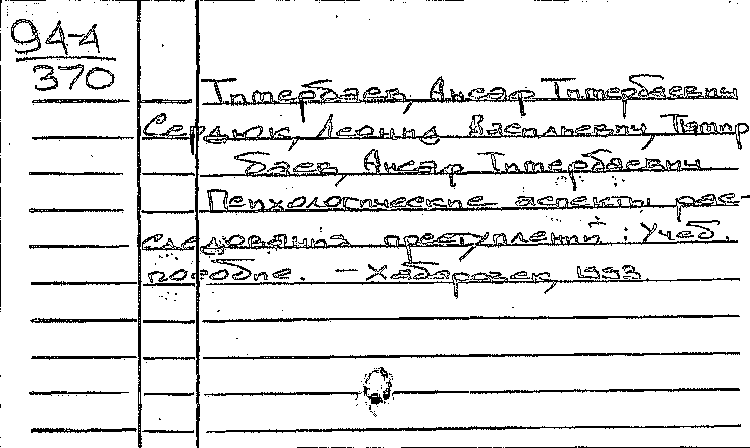 94-4
370
Тимербаев, Ансар Тимербаевич
Сердюк, Леонид Васильевич, Тимир
баев, Ансар Тимербаевич
Психологические аспекты рас-
следования преступлений : Учеб.
пособие. – Хабаровск, 1993.